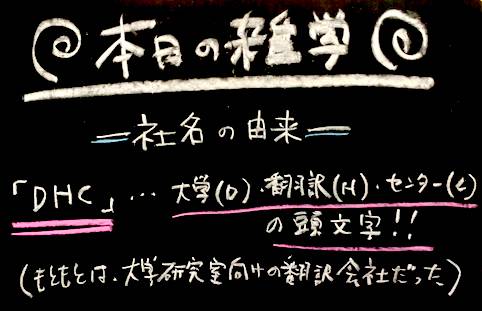 本日の雑学
社名の由来
「DHC」… 大学(D)・翻訳(H)・センター(C)
の頭文字!!
(もともとは、大学研究室向けの翻訳会社だった)